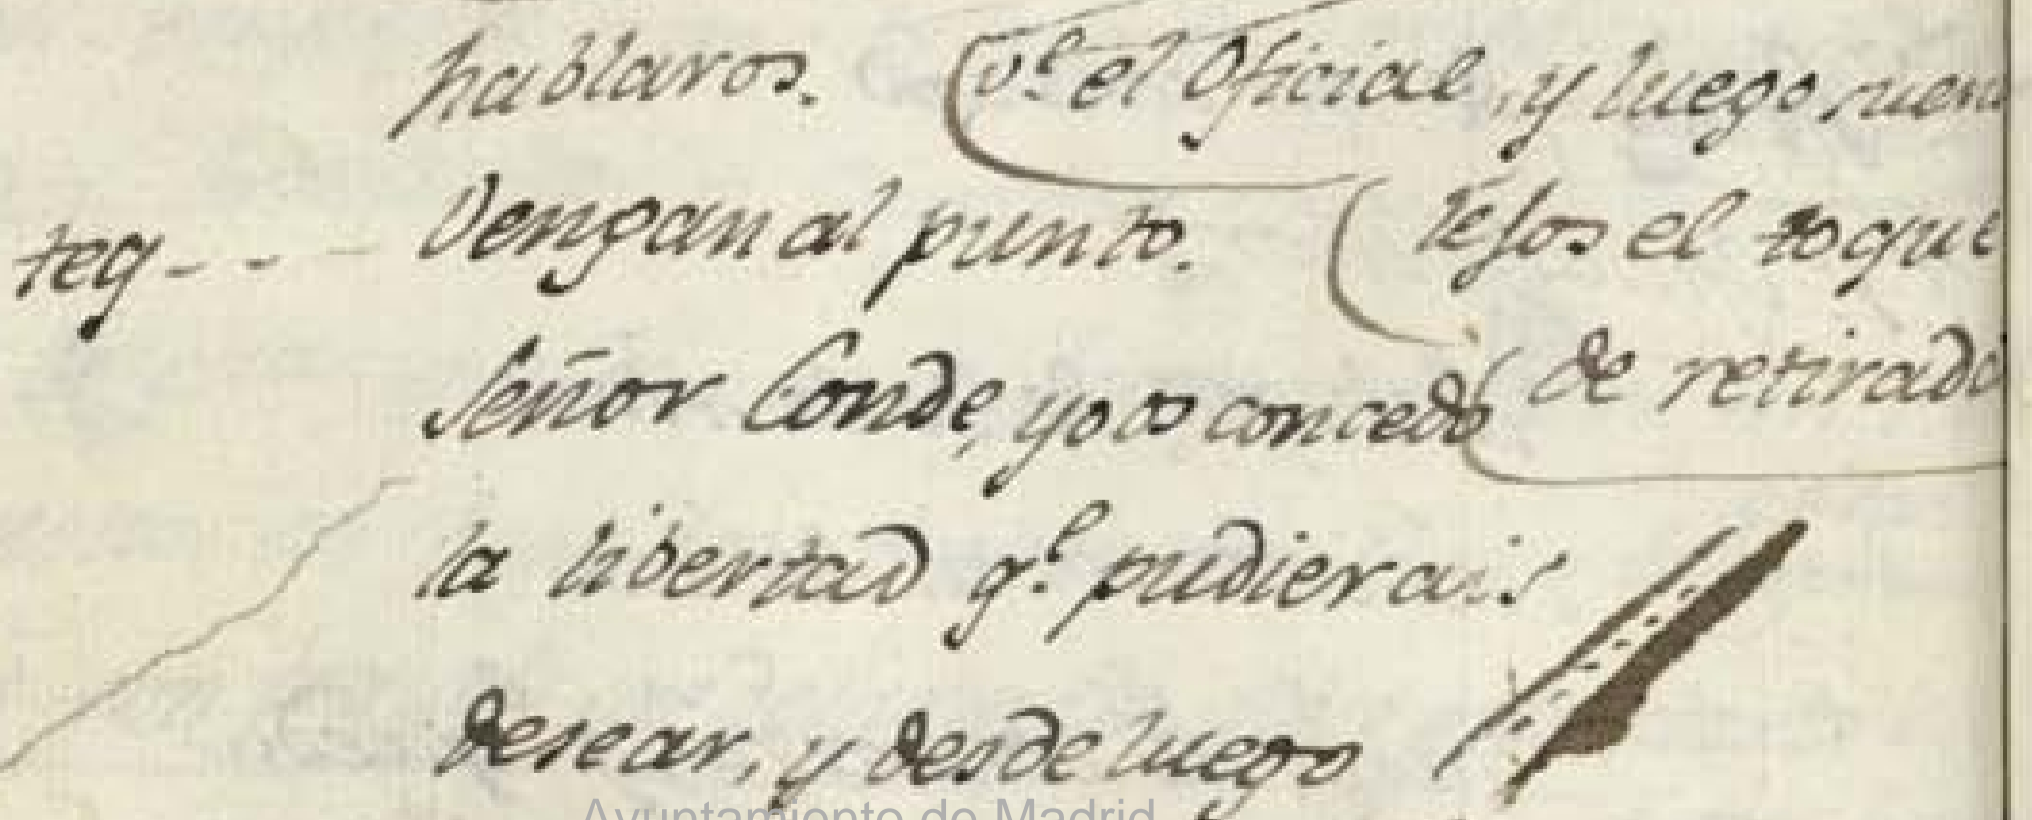 hablaros. v.e el Oficial, y luego suena
teq--- Vengan al punto. léjos el toque
Señor Conde, yo os concedo de retirada
la libertad q.e pudierais
desear, y desde luego
Ayuntamiento de Madrid